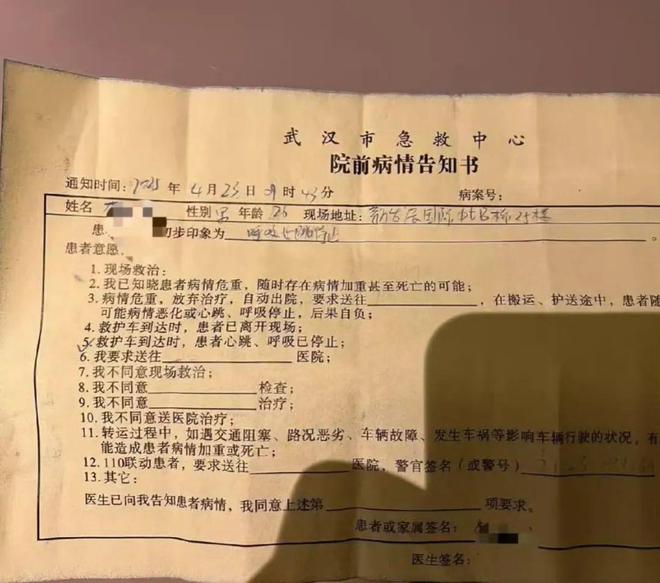 武汉市急救中心
院前病情告知书
通知时间：2025年4月23日 时43分 病案号：
姓名 性别 男 年龄 26 现场地址：新 国际 栋25楼
患 初步印象为 呼吸心跳停止
患者意愿：
1. 现场救治：
2. 我已知晓患者病情危重，随时存在病情加重甚至死亡的可能；
3. 病情危重，放弃治疗，自动出院，要求送往 ，在搬运、护送途中，患者随
可能病情恶化或心跳、呼吸停止，后果自负；
4. 救护车到达时，患者已离开现场；
5. 救护车到达时，患者心跳、呼吸已停止；
6. 我要求送往 医院；
7. 我不同意现场救治；
8. 我不同意 检查；
9. 我不同意 治疗；
10. 我不同意送医院治疗；
11. 转运过程中，如遇交通阻塞、路况恶劣、车辆故障、发生车祸等影响车辆行驶的状况，有
能造成患者病情加重或死亡；
12. 110联动患者，要求送往 医院，警官签名（或警号）
13. 其它：
医生已向我告知患者病情，我同意上述第 项要求。
患者或家属签名：
医生签名：